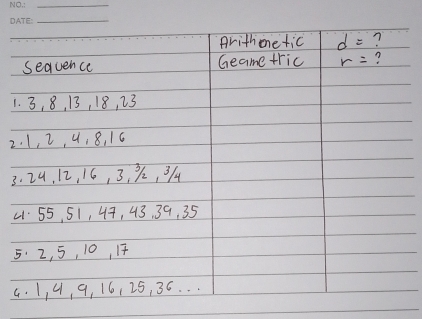 NO.:
DATE:
Arithmetic d = ?
Sequence Geametric r = ?
1. 3, 8, 13, 18, 23
2. 1, 2, 4, 8, 16
3. 24, 12, 16, 3, 3/2, 3/4
4. 55, 51, 47, 43, 39, 35
5. 2, 5, 10, 17
6. 1, 4, 9, 16, 25, 36...